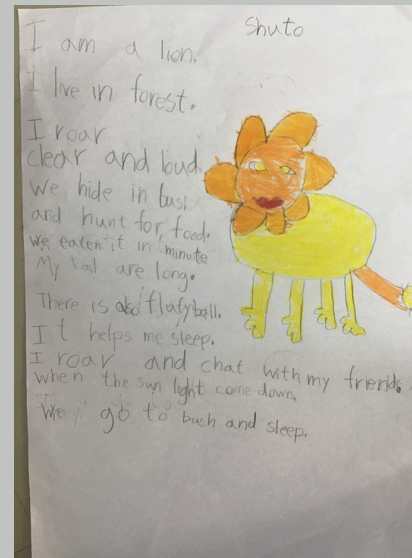 Shuto
I am a lion.
I live in forest.
I roar
clear and loud.
We hide in bush
and hunt for food.
We eaten it in minute
My tail are long.
There is also flufyball.
It helps me sleep.
I roar and chat with my friends
when the sun light come down.
We go to bush and sleep.